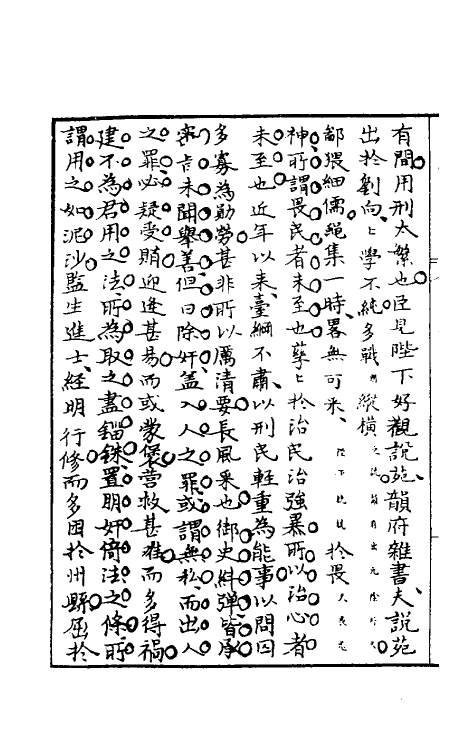 有間用刑太繁也臣見陛下好觀說苑韻府雜書夫說苑
出於劉向〻學不純多戰國縱橫之說韻府出元陰時夫
鄙猥細儒繩集一時畧無可采陛下兢兢於畏天畏鬼
神所謂畏民者未至也孳〻於治民治強暴所以治心者
未至也近年以来臺綱不肅以刑民輕重為能事以問囚
多寡為勛勞甚非所以厲清要長風采也御史糾彈皆承
密旨未聞舉善但曰除奸盖入人之罪或謂無私而出人
之罪必疑受賄迎逢甚易而或蒙褒營救甚难而多得禍
建不為君用之法所為取之盡錙銖置朋奸倚法之條所
謂用之如泥沙監生進士經明行修而多困於州縣屈於